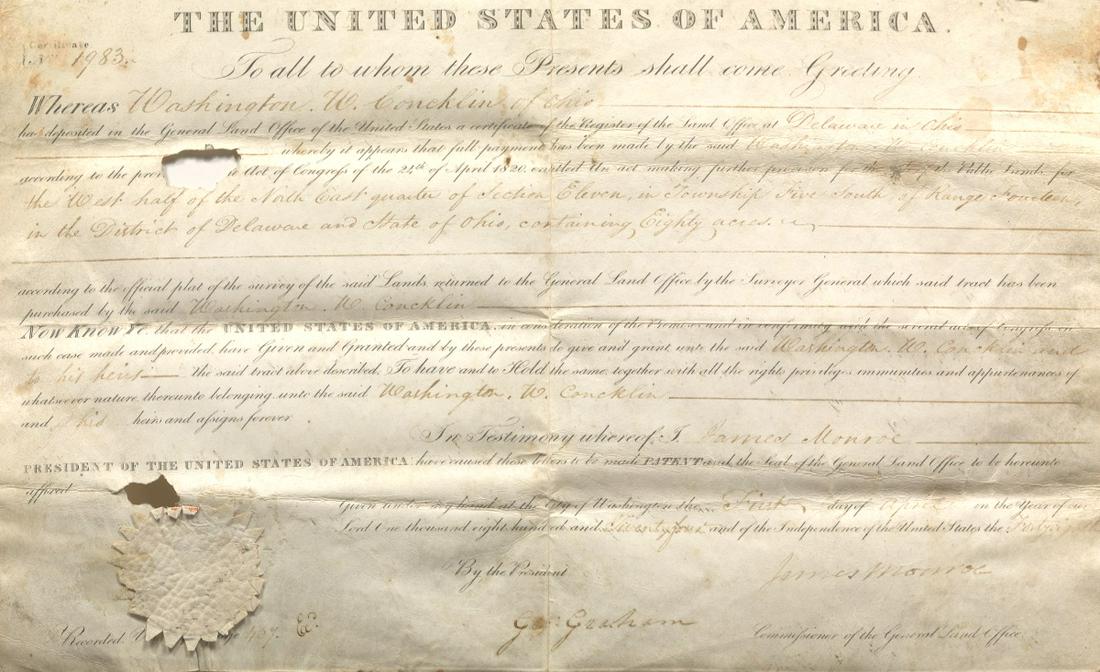 THE UNITED STATES OF AMERICA.
Certificate
No. 1983.
To all to whom these Presents shall come Greeting
Whereas Washington. W. Concklin of Ohio
has deposited in the General Land Office of the United States a certificate of the Register of the Land Office at Delaware in Ohio
whereby it appears that full payment has been made by the said Washington W. Concklin
according to the Act of Congress of the 24th of April 1820. entitled An act making further provision for the sale of the Public Lands, for
the West half of the North East quarter of Section Eleven, in Township Five South, of Range Fourteen,
in the District of Delaware and State of Ohio, containing Eighty acres.
according to the official plat of the survey of the said Lands returned to the General Land Office by the Surveyor General which said tract has been
purchased by the said Washington. W. Concklin
Now Know Ye, that the UNITED STATES OF AMERICA, in consideration of the Premises and in conformity with the several acts of Congress in
such case made and provided, have Given and Granted and by these presents do give and grant, unto the said Washington. W. Concklin and
to his heirs the said tract above described, To have and to Hold the same, together with all the rights privileges immunities and appurtenances of
whatsoever nature thereunto belonging unto the said Washington. W. Concklin
and his heirs and assigns forever
In Testimony whereof, I, James Monroe
PRESIDENT OF THE UNITED STATES OF AMERICA have caused these letters to be made PATENT and the Seal of the General Land Office to be hereunto
affixed.
Given under my hand at the City of Washington the First day of April in the Year of our
Lord One thousand eight hundred and Twenty four and of the Independence of the United States the Forty
By the President James Monroe
Geo: Graham Commissioner of the General Land Office
Recorded